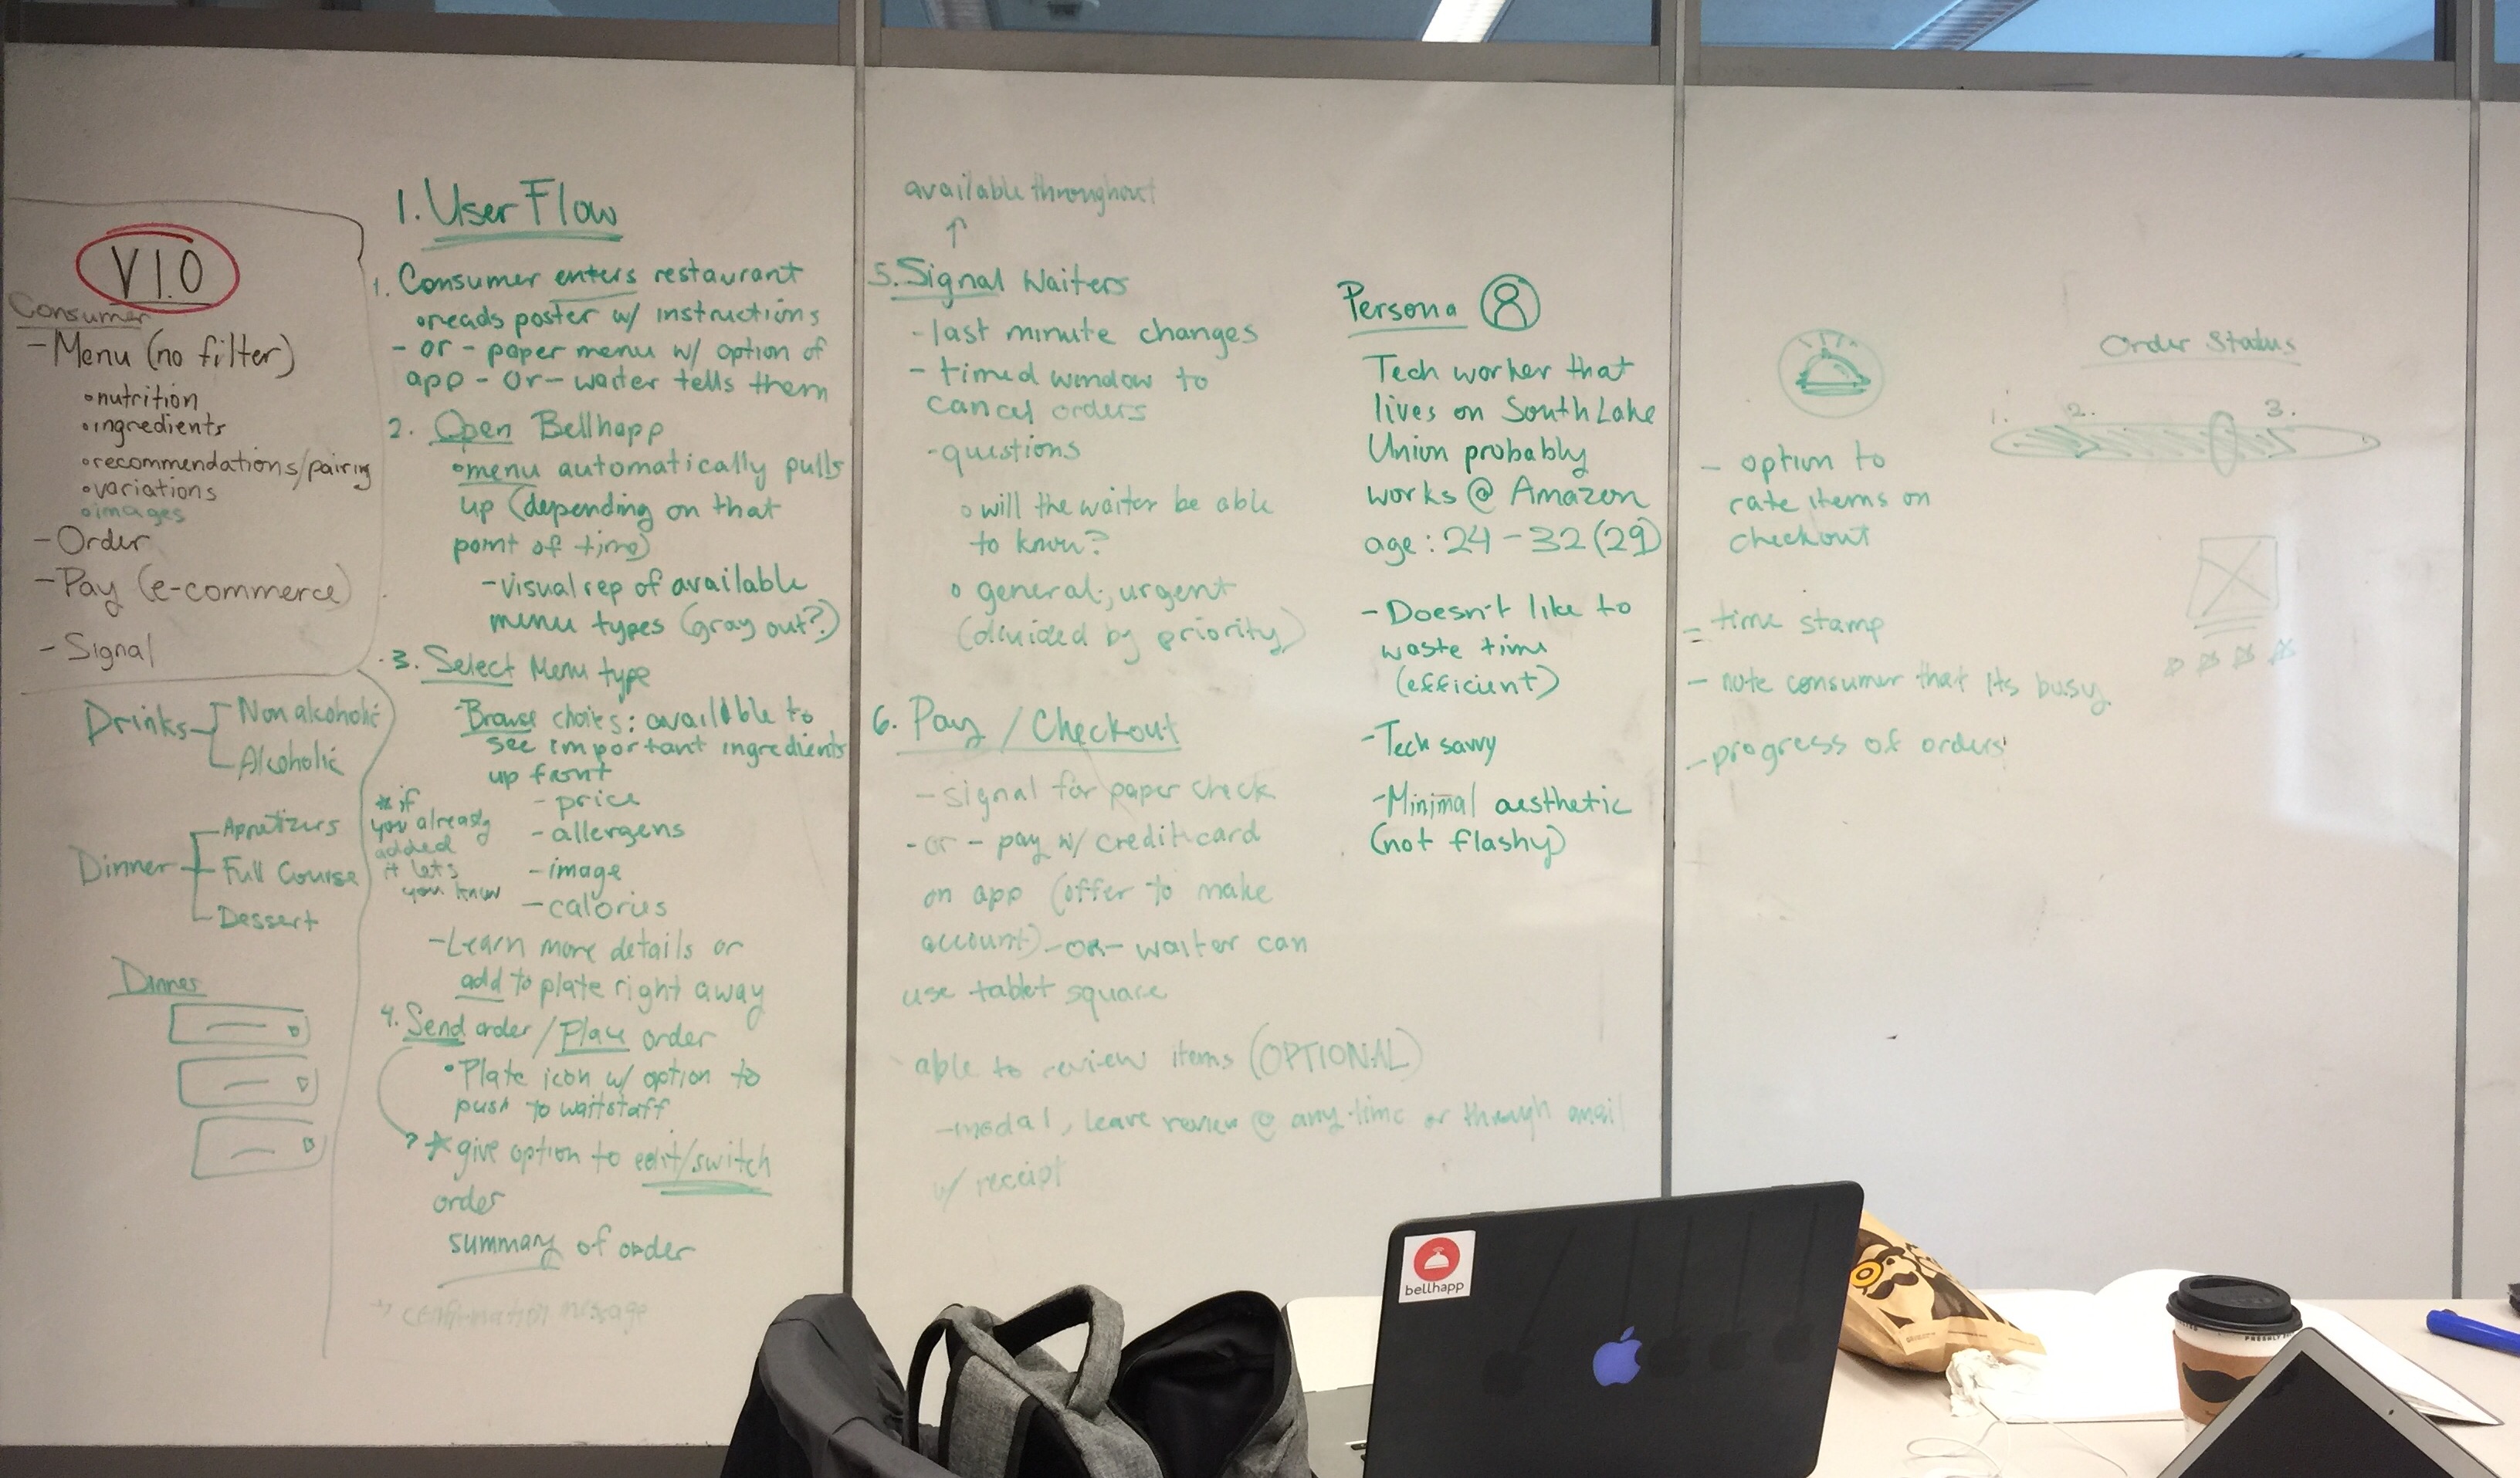 V 1.0
Consumer
- Menu (no filter)
• nutrition
• ingredients
• recommendations/pairing
• variations
• images
- Order
- Pay (e-commerce)
- Signal
Drinks
Non alcoholic
Alcoholic
Dinner
Appetizers
Full Course
Dessert
Dinner
1. User Flow
1. Consumer enters restaurant
• reads poster w/ instructions
- or - paper menu w/ option of
app - or - waiter tells them
2. Open Bellhapp
• menu automatically pulls
up (depending on that
point of time)
- visual rep of available
menu types (gray out?)
3. Select Menu type
- Browse choices: available to
see important ingredients
up front
- price
- allergens
- image
- calories
* if
you already
added
it lets
you know
- Learn more details or
add to plate right away
4. Send order / Place order
• Plate icon w/ option to
push to waitstaff
? * give option to edit/switch
order
summary of order
→ confirmation message
available throughout
↑
5. Signal Waiters
- last minute changes
- timed window to
cancel orders
- questions
o will the waiter be able
to know?
o general, urgent
(divided by priority)
6. Pay / Checkout
- signal for paper check
- or - pay w/ credit card
on app (offer to make
account) - or - waiter can
use tablet square
able to review items (OPTIONAL)
- modal, leave review @ any time or through email
w/ receipt
Persona
Tech worker that
lives on South Lake
Union probably
works @ Amazon
age: 24 - 32 (29)
- Doesn't like to
waste time
(efficient)
- Tech savvy
- Minimal aesthetic
(not flashy)
- option to
rate items on
checkout
= time stamp
- note consumer that its busy.
- progress of orders
Order Status
1. 2. 3.
bellhapp